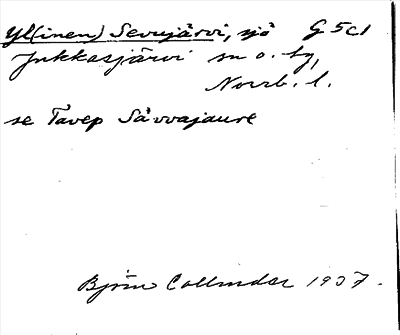 Yl(inen) Sevujärvi, sjö G5c1
Jukkasjärvi sn o. by,
Norrb. l.
se Tavep Såvvajaure
Björn Collinder 1937.